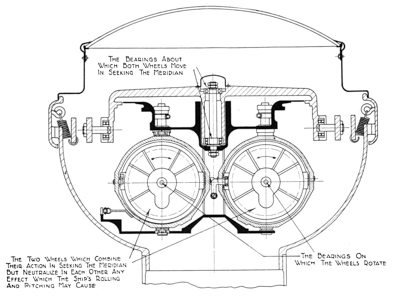 The Bearings About
Which Both Wheels Move
In Seeking The Meridian
The Two Wheels Which Combine
Their Action In Seeking The Meridian
But Neutralize In Each Other Any
Effect Which The Ship's Rolling
And Pitching May Cause
The Bearings On
Which The Wheels Rotate